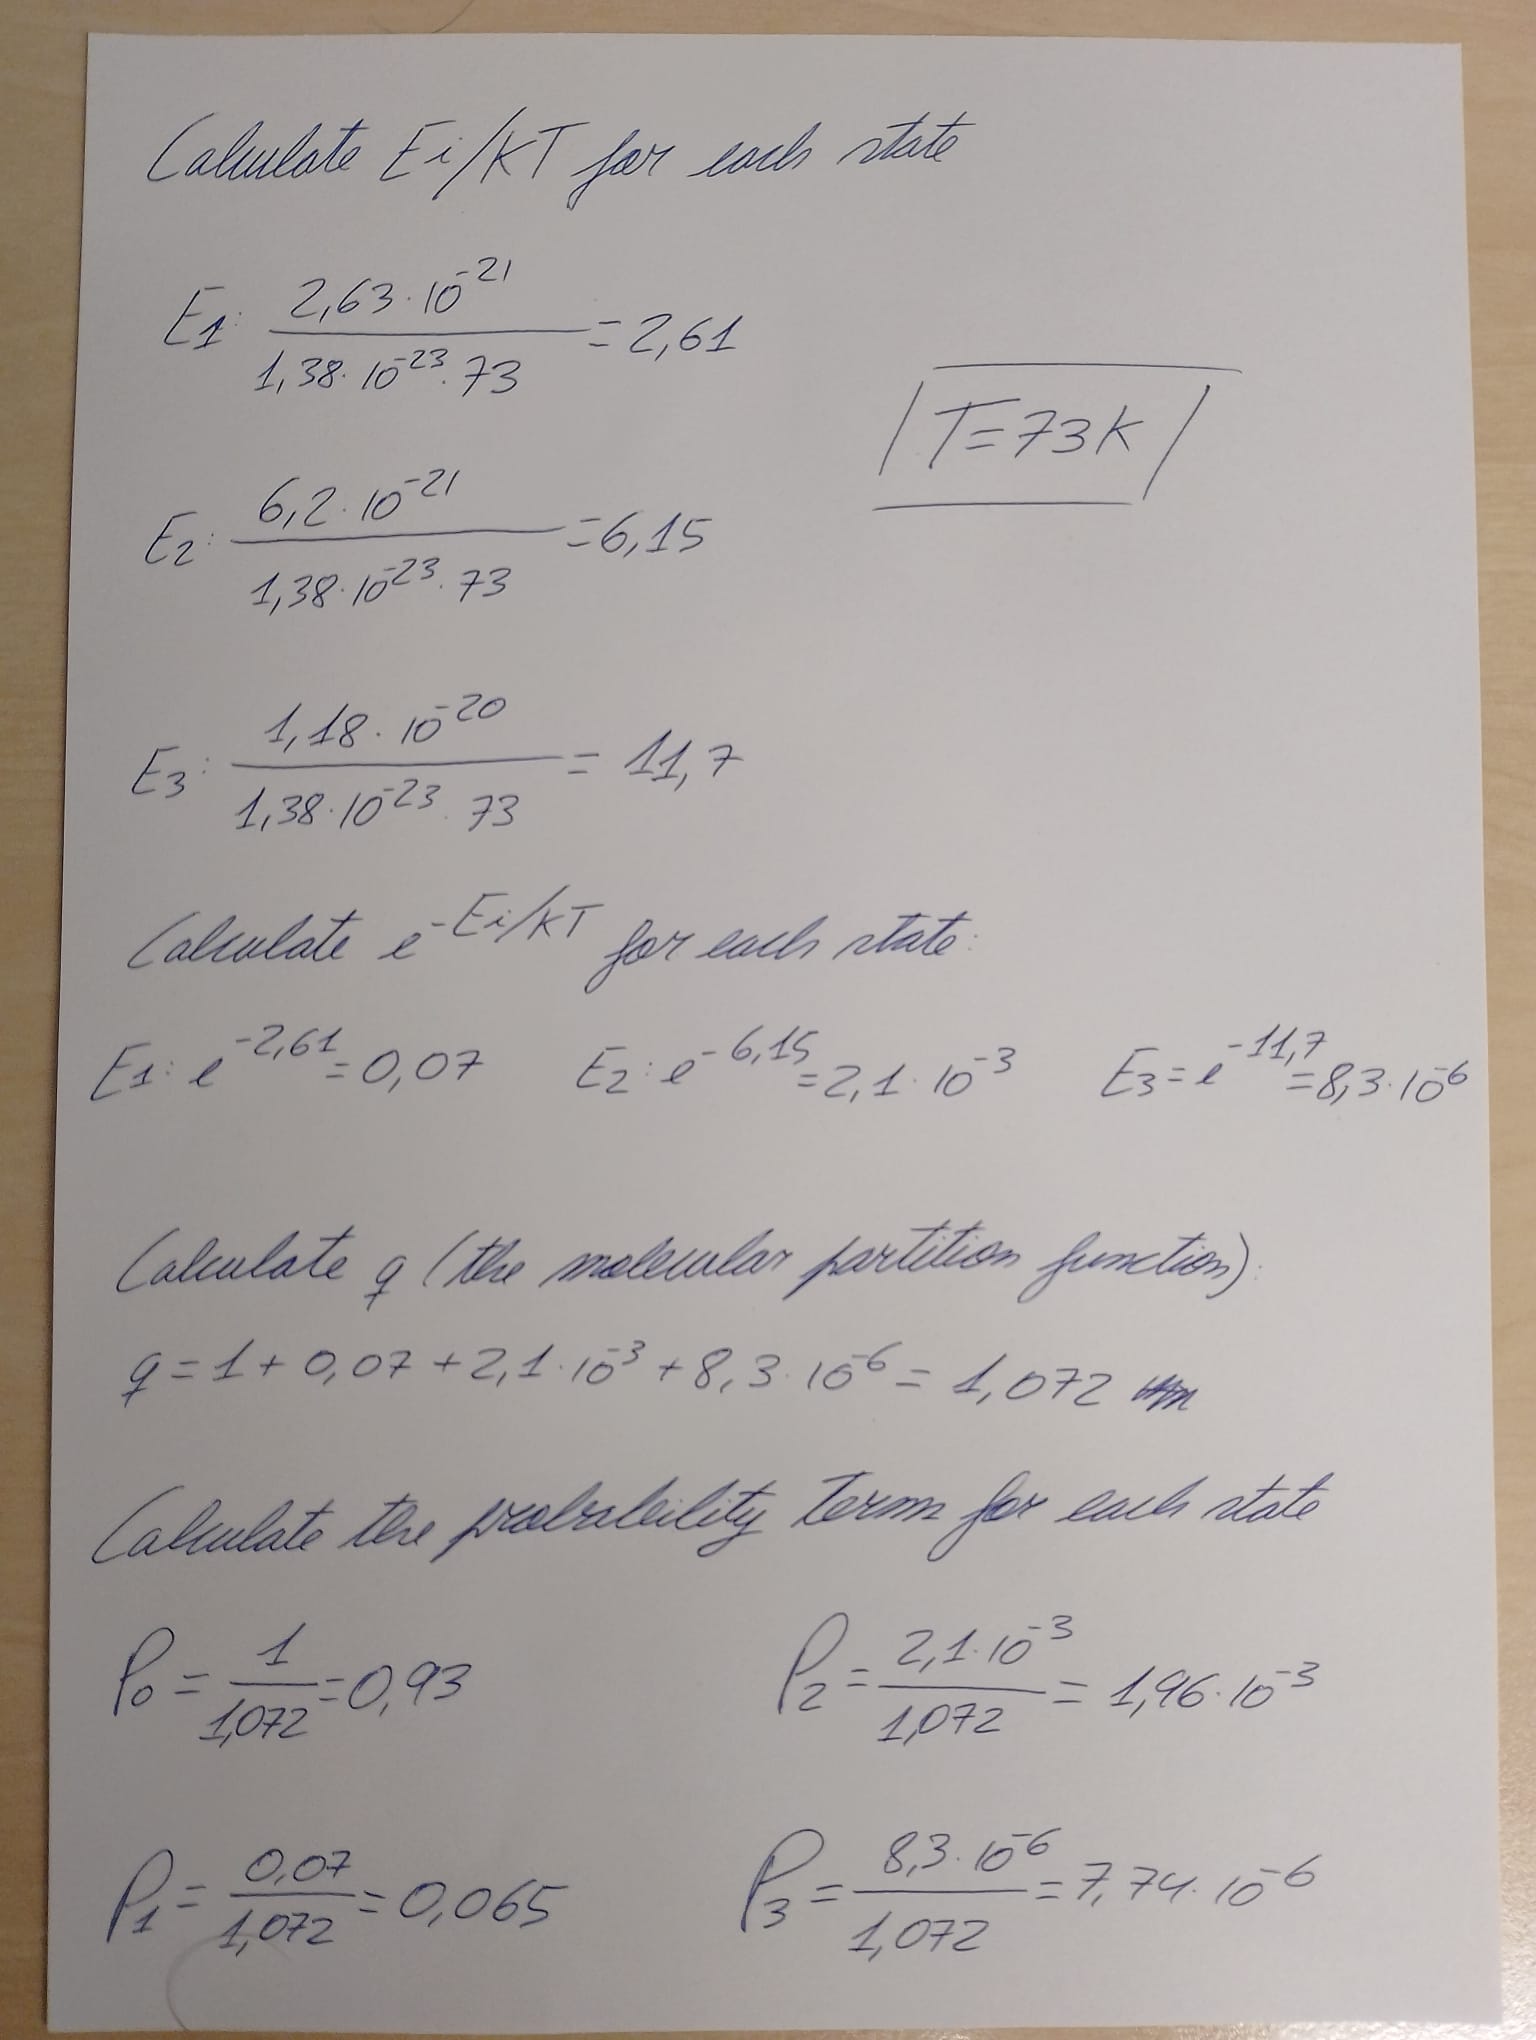 Calculate Ei/KT for each state
E1: 2,63·10^-21 / 1,38·10^-23·73 = 2,61
T=73K
E2: 6,2·10^-21 / 1,38·10^-23·73 = 6,15
E3: 1,18·10^-20 / 1,38·10^-23·73 = 11,7
Calculate e^-Ei/KT for each state:
E1: e^-2,61 = 0,07 E2: e^-6,15 = 2,1·10^-3 E3 = e^-11,7 = 8,3·10^-6
Calculate q (the molecular partition function):
q = 1 + 0,07 + 2,1·10^-3 + 8,3·10^-6 = 1,072
Calculate the probability term for each state
P0 = 1 / 1,072 = 0,93 P2 = 2,1·10^-3 / 1,072 = 1,96·10^-3
P1 = 0,07 / 1,072 = 0,065 P3 = 8,3·10^-6 / 1,072 = 7,74·10^-6